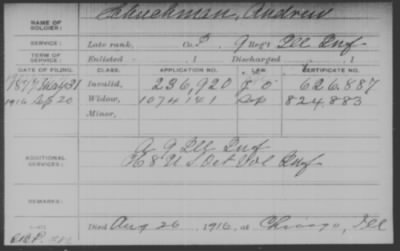 NAME OF SOLDIER: Schuchman, Andrew
SERVICE: Late rank, Co. B 9 Reg't Ill Inf
TERM OF SERVICE: Enlisted , 1 Discharged , 1
DATE OF FILING. CLASS. APPLICATION NO. LAW. CERTIFICATE NO.
31 Invalid, 236,920 626,887
1916 Sep 20 Widow, 1074141 824,883
Minor,
ADDITIONAL SERVICES: A 9 Ill Inf
8 U S Vet Vol Inf
REMARKS:
Died Aug 26, 1916, at Chicago, Ill